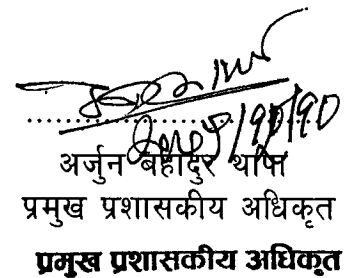 अर्जुन बहादुर थापा
प्रमुख प्रशासकीय अधिकृत
प्रमुख प्रशासकीय अधिकृत